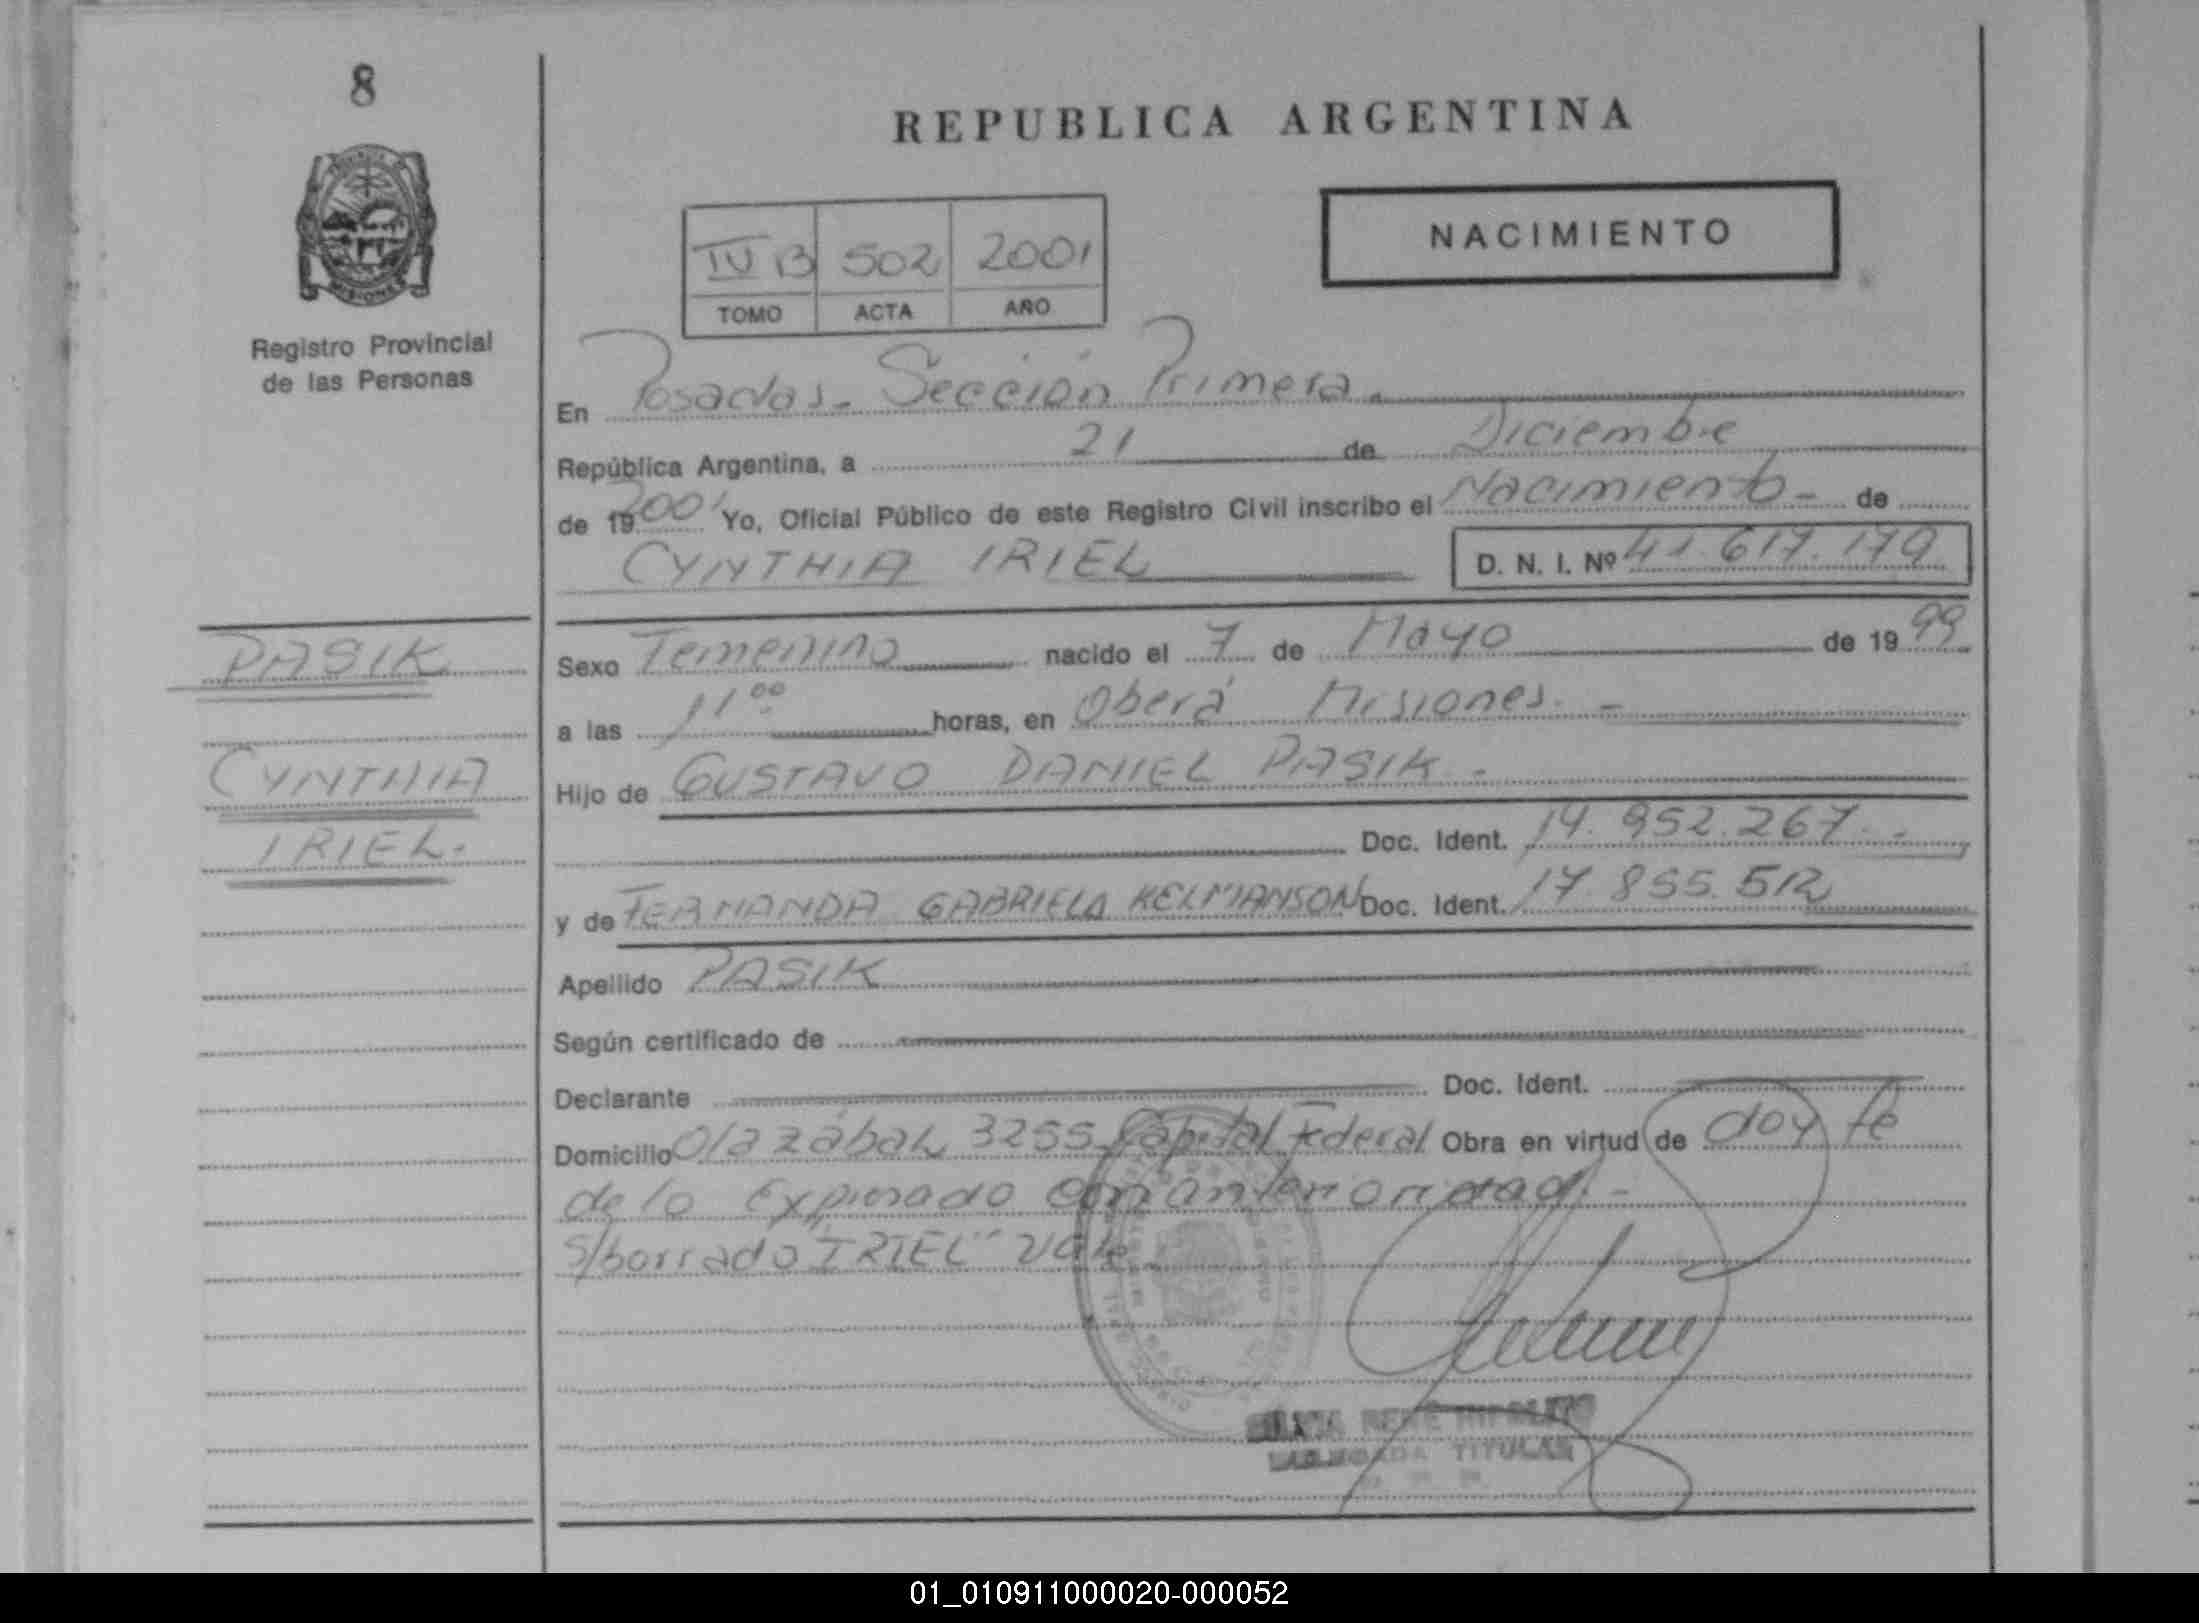 8
REPUBLICA ARGENTINA
MISIONES
Registro Provincial
de las Personas
IV B 502 2001
TOMO ACTA AÑO
NACIMIENTO
En Posadas - Sección Primera.
República Argentina, a 21 de Diciembre
de 19 2001 Yo, Oficial Público de este Registro Civil inscribo el Nacimiento - de
CYNTHIA IRIEL D. N. I. Nº 41.617.179
PASIK
CYNTHIA
IRIEL.
Sexo Femenino nacido el 7 de Mayo de 19 99
a las 11 00 horas, en Oberá Misiones. -
Hijo de GUSTAVO DANIEL PASIK -
Doc. Ident. 14.952.267. -
y de FERNANDA GABRIELA KELMANSON Doc. Ident. 17.855.512
Apellido PASIK
Según certificado de
Declarante Doc. Ident.
Domicilio Olazábal 3255 Capital Federal Obra en virtud de doy fe
de lo Expresado con anterioridad. -
S/borrado "IRIEL" Vale.
RENÉ HIPOLITO
DELEGADA TITULAR
01_010911000020-000052